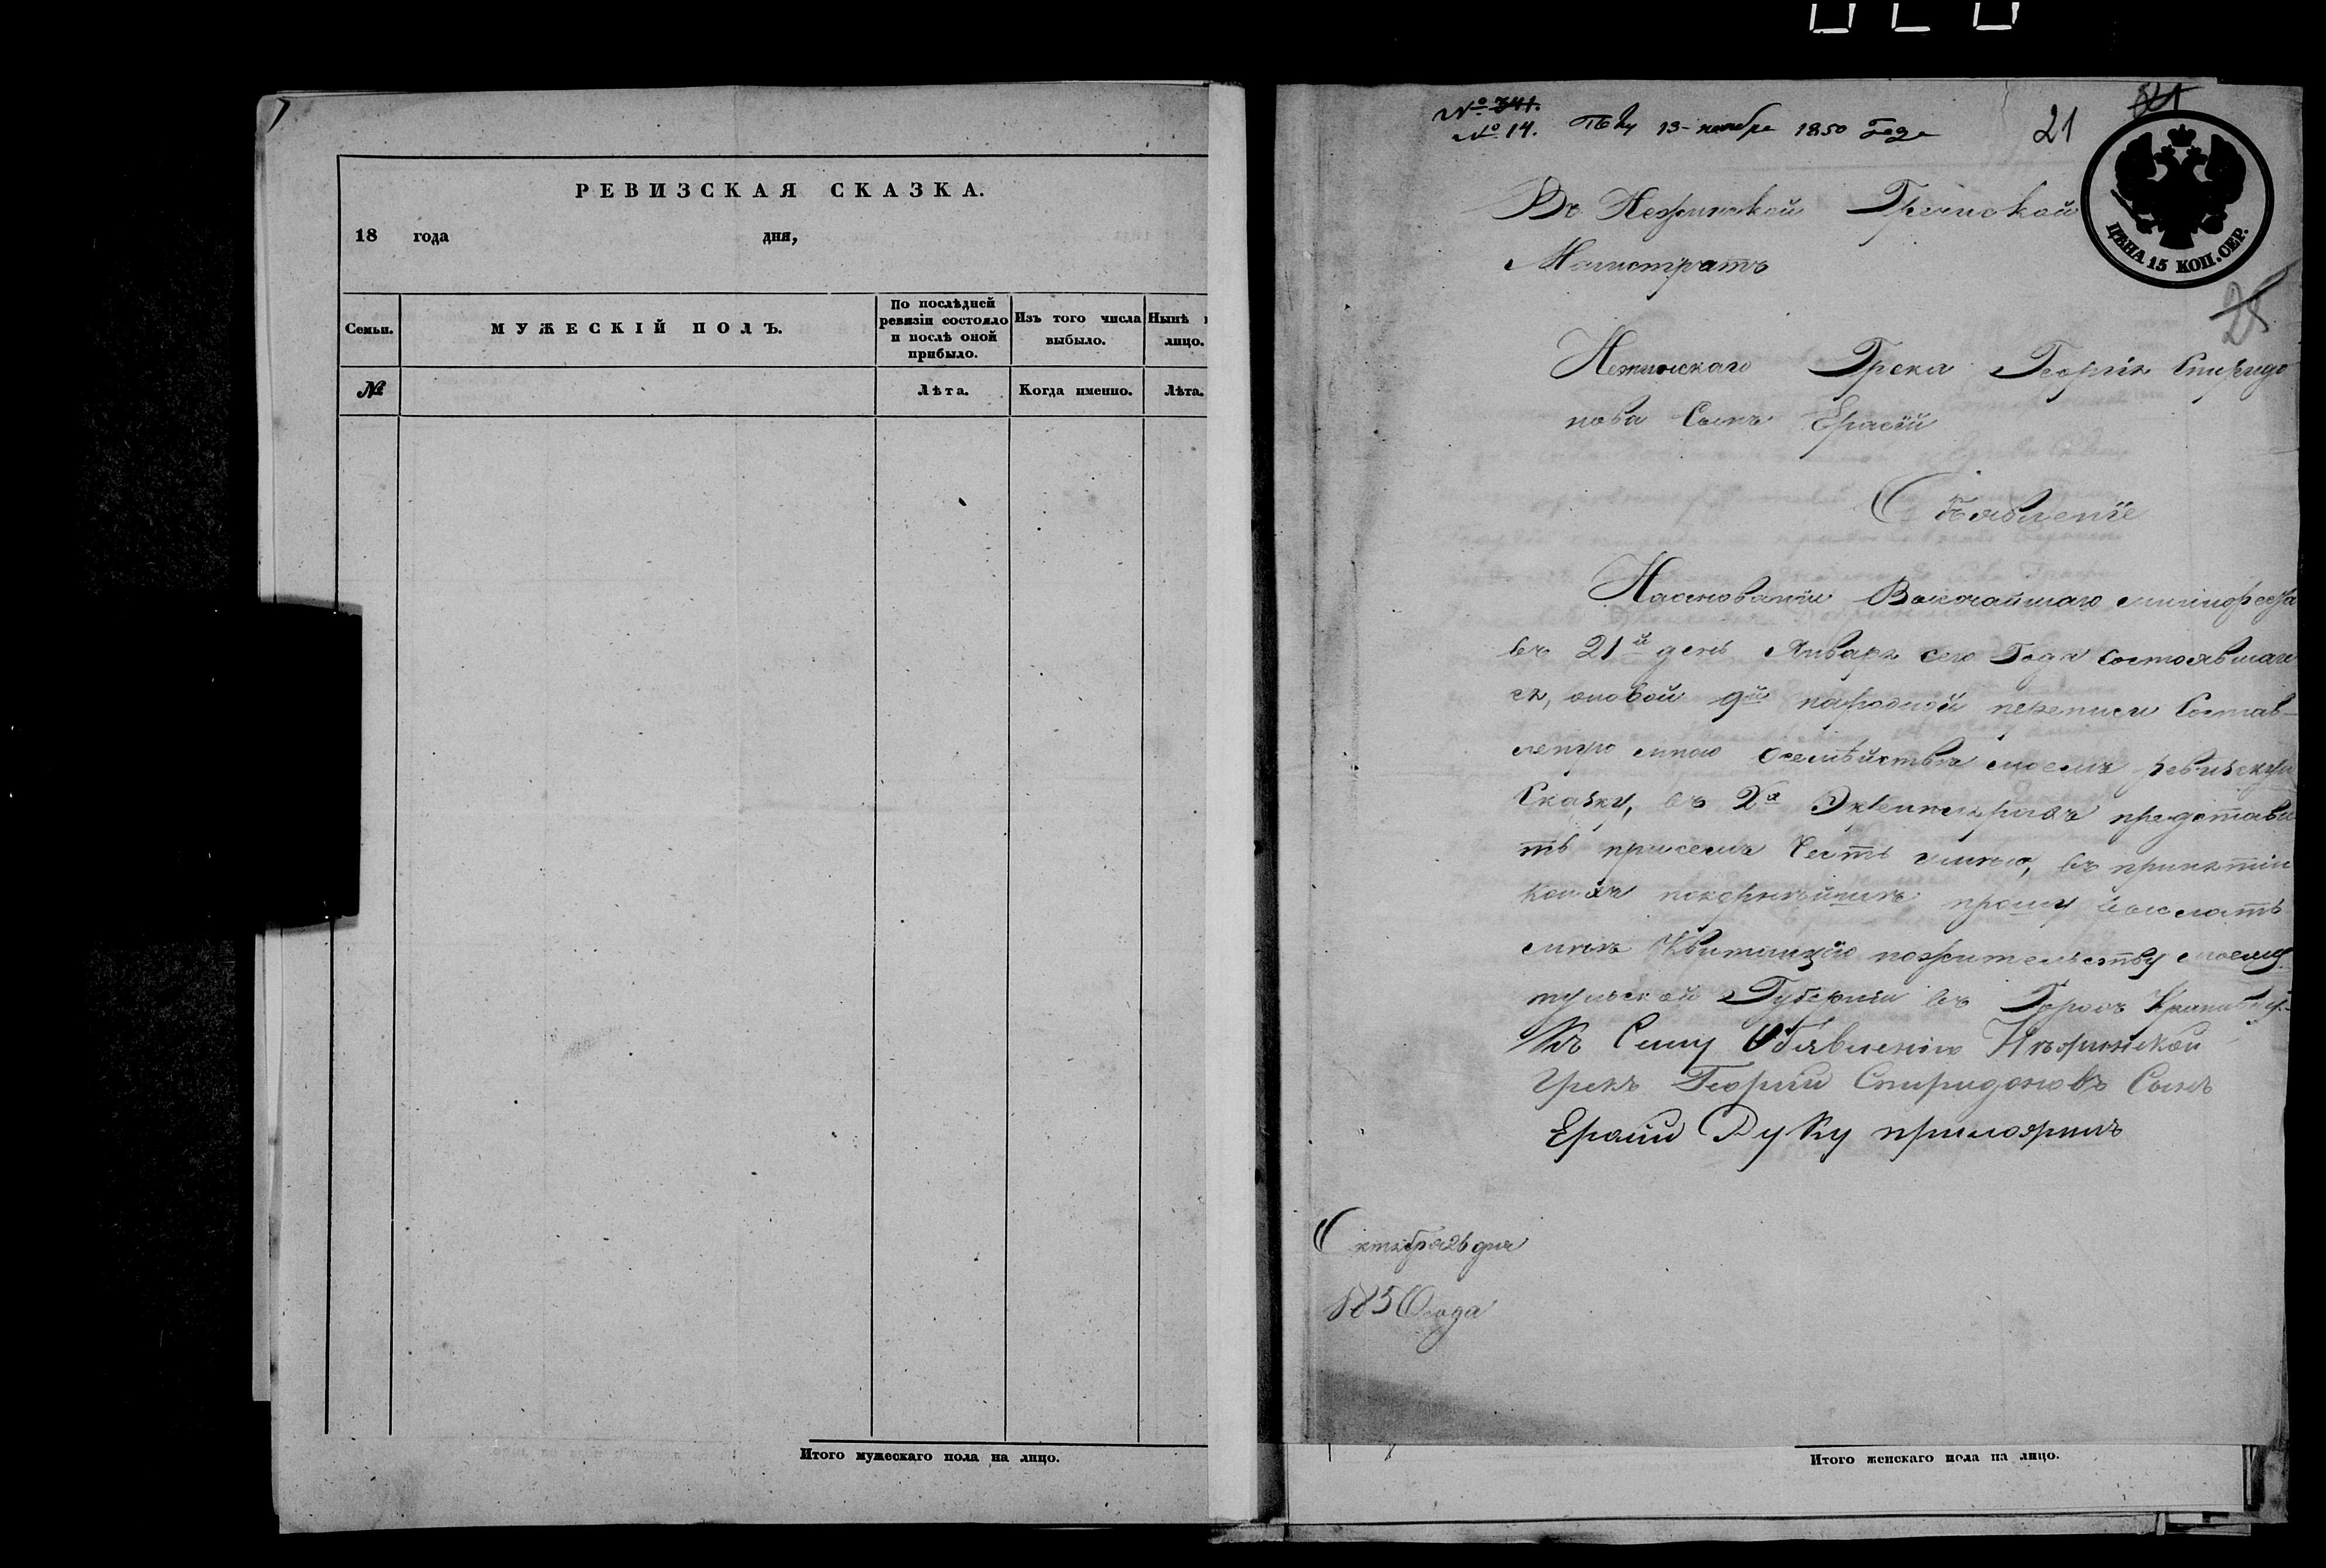 РЕВИЗСКАЯ СКАЗКА.
18 года дня,
Семьи.
МУЖЕСКІЙ ПОЛЪ.
По послѣдней
ревизіи состояло
и послѣ оной
прибыло.
Изъ того числа
выбыло.
Нынѣ
лицо.
№
Лѣта.
Когда именно.
Лѣта.
Итого мужескаго пола на лицо.
№ 341.
№ 14. 13 ноября 1850 Года
21
ЦѢНА 15 КОП. СЕР.
25
Въ Нежинской Греческой
Магистратъ
Нежинскаго Грека Георгія Спиридо
нова Сынъ Ераси
Объявленіе
Наоснованіи Высочайшаго манифеста
въ 21й день Января сего Года Состоявшаго
ся, оновой 9й народной переписи Состав-
леную мною Осемѣйствѣ моемъ ревизскую
Сказку, въ 2х Экземплярахъ представи
ть присемъ Честь имѣю, въ принятіи
коихъ покорнѣйше прошу выслать
мнѣ Квитанцію пожительству моему
тульской Губерніи въ Городъ
Къ Сему Объявленію Нѣжинской
Грекъ Георгій Спиридоновъ Сынъ
Ераси Руку приложилъ
Октября 26 дня
1850 года
Итого женскаго пола на лицо.